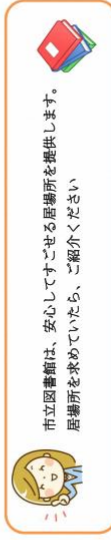 市立図書館は、安心してすごせる居場所を提供します。
居場所を求めていたら、ご紹介ください